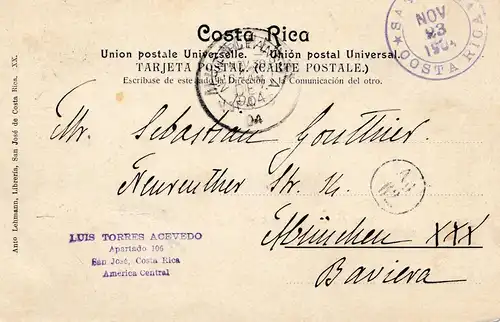 Costa Rica
Union postale Universelle. Unión postal Universal.
TARJETA POSTAL (CARTE POSTALE.)
Escríbase de este lado la Dirección la Comunicación del otro.
NOV
23
COSTA RICA
1904
04
Mr. Sebastian Gouthier.
Neureuther Str.
München XXX
Baviera
LUIS TORRES ACEVEDO
Apartado 106
San José, Costa Rica
America Central
Anto Lehmann, Librería, San José de Costa Rica. XX.